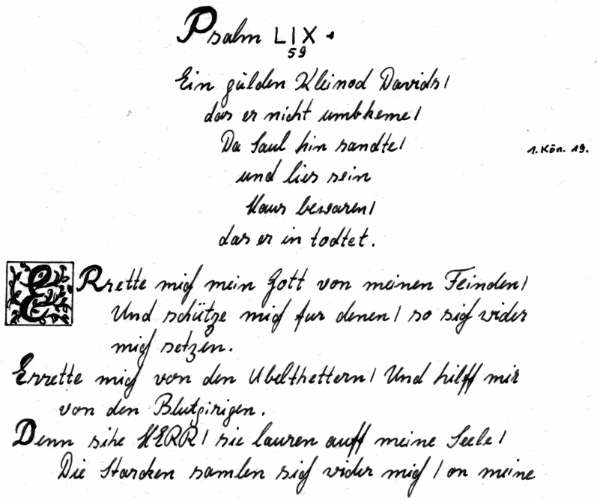 Psalm LIX.
59
Ein gülden Kleinod Davids/
das er nicht umbkeme/
Da Saul hin sandte/
1. Kön. 19.
und lies sein
Haus bewaren/
das er in todtet.
ERrette mich mein Gott von meinen Feinden/
Und schütze mich fur denen/ so sich wider
mich setzen.
Errette mich von den Ubelthettern/ Und hilff mir
von den Blutgirigen.
Denn sihe HERR/ sie lauren auff meine Seele/
Die Starcken samlen sich wider mich/ on meine